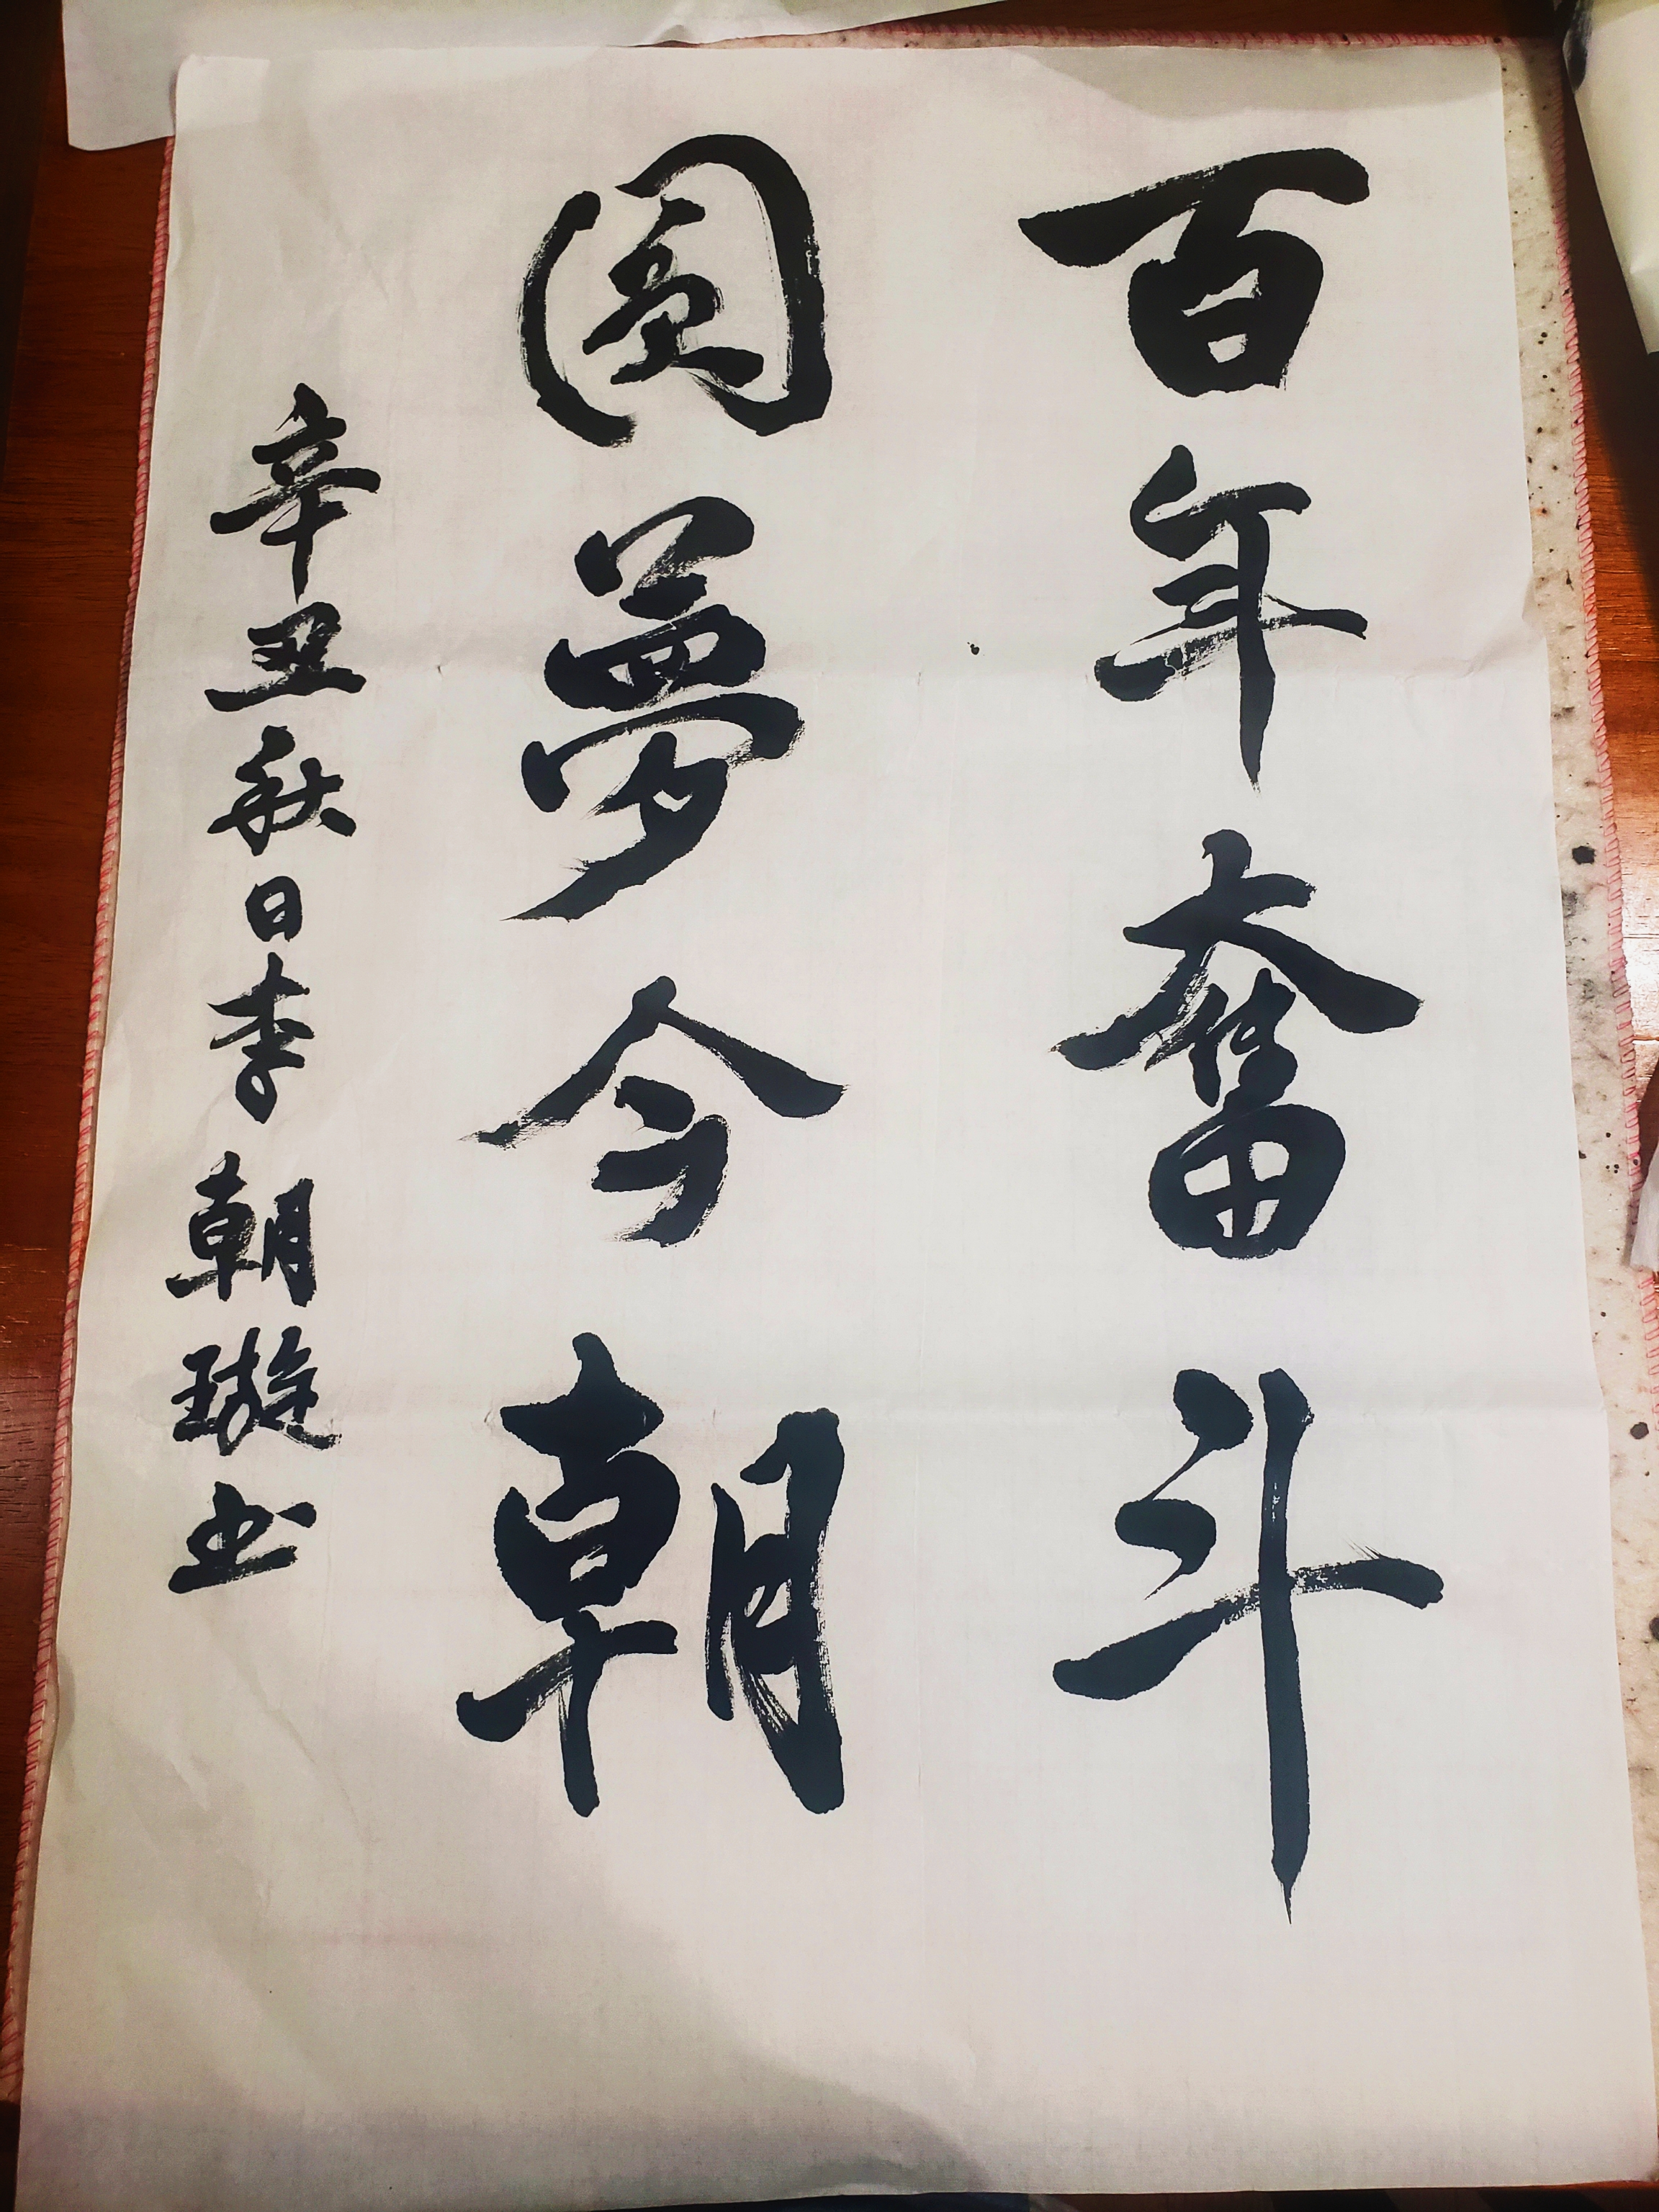 百年奮斗
圆夢今朝
辛丑秋日李朝璇书